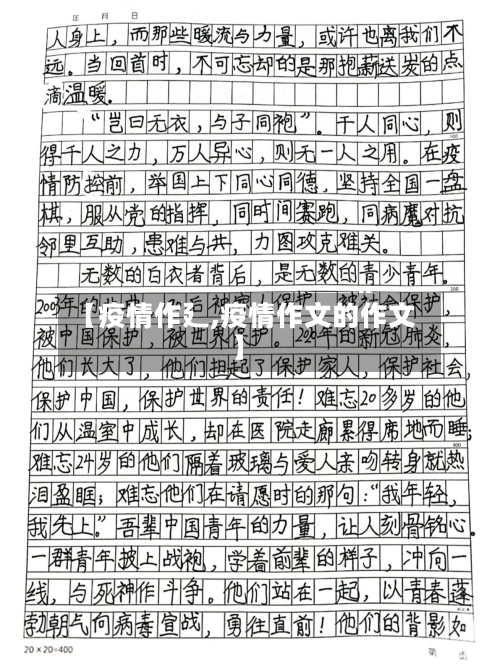 年 月 日
人身上，而那些暖流与力量，或许也离我们不
远。当回首时，不可忘却的是那抱薪送炭的点
滴温暖.
“岂曰无衣，与子同袍”。千人同心，则
得千人之力，万人异心，则无一人之用。在疫
情防控前，举国上下同心同德，坚持全国一盘
棋，服从党的指挥，同时间赛跑，同病魔对抗
邻里互助，患难与共，力图攻克难关。
无数的白衣者背后，是无数的青少年。
2003年的 保护，被社会保护，
【疫情作文,疫情作文的作文
】
被中国保护，被世界保护。 年的新冠肺炎，
他们长大了，他们担起了保护家人，保护社会，
保护中国，保护世界的责任！难忘20多岁的他
们从温室中成长，却在医院走廊累得席地而睡；
难忘24岁的他们隔着玻璃与爱人亲吻转身就热
泪盈眶；难忘他们在请愿时的那句：“我年轻，
我先上。”吾辈中国青年的力量，让人刻骨铭心。
一群青年披上战袍，学着前辈的样子，冲向一
线，与死神作斗争。他们站在一起，以青春蓬
勃朝气向病毒宣战，勇往直前！他们的背影如
20×20=400
第 页